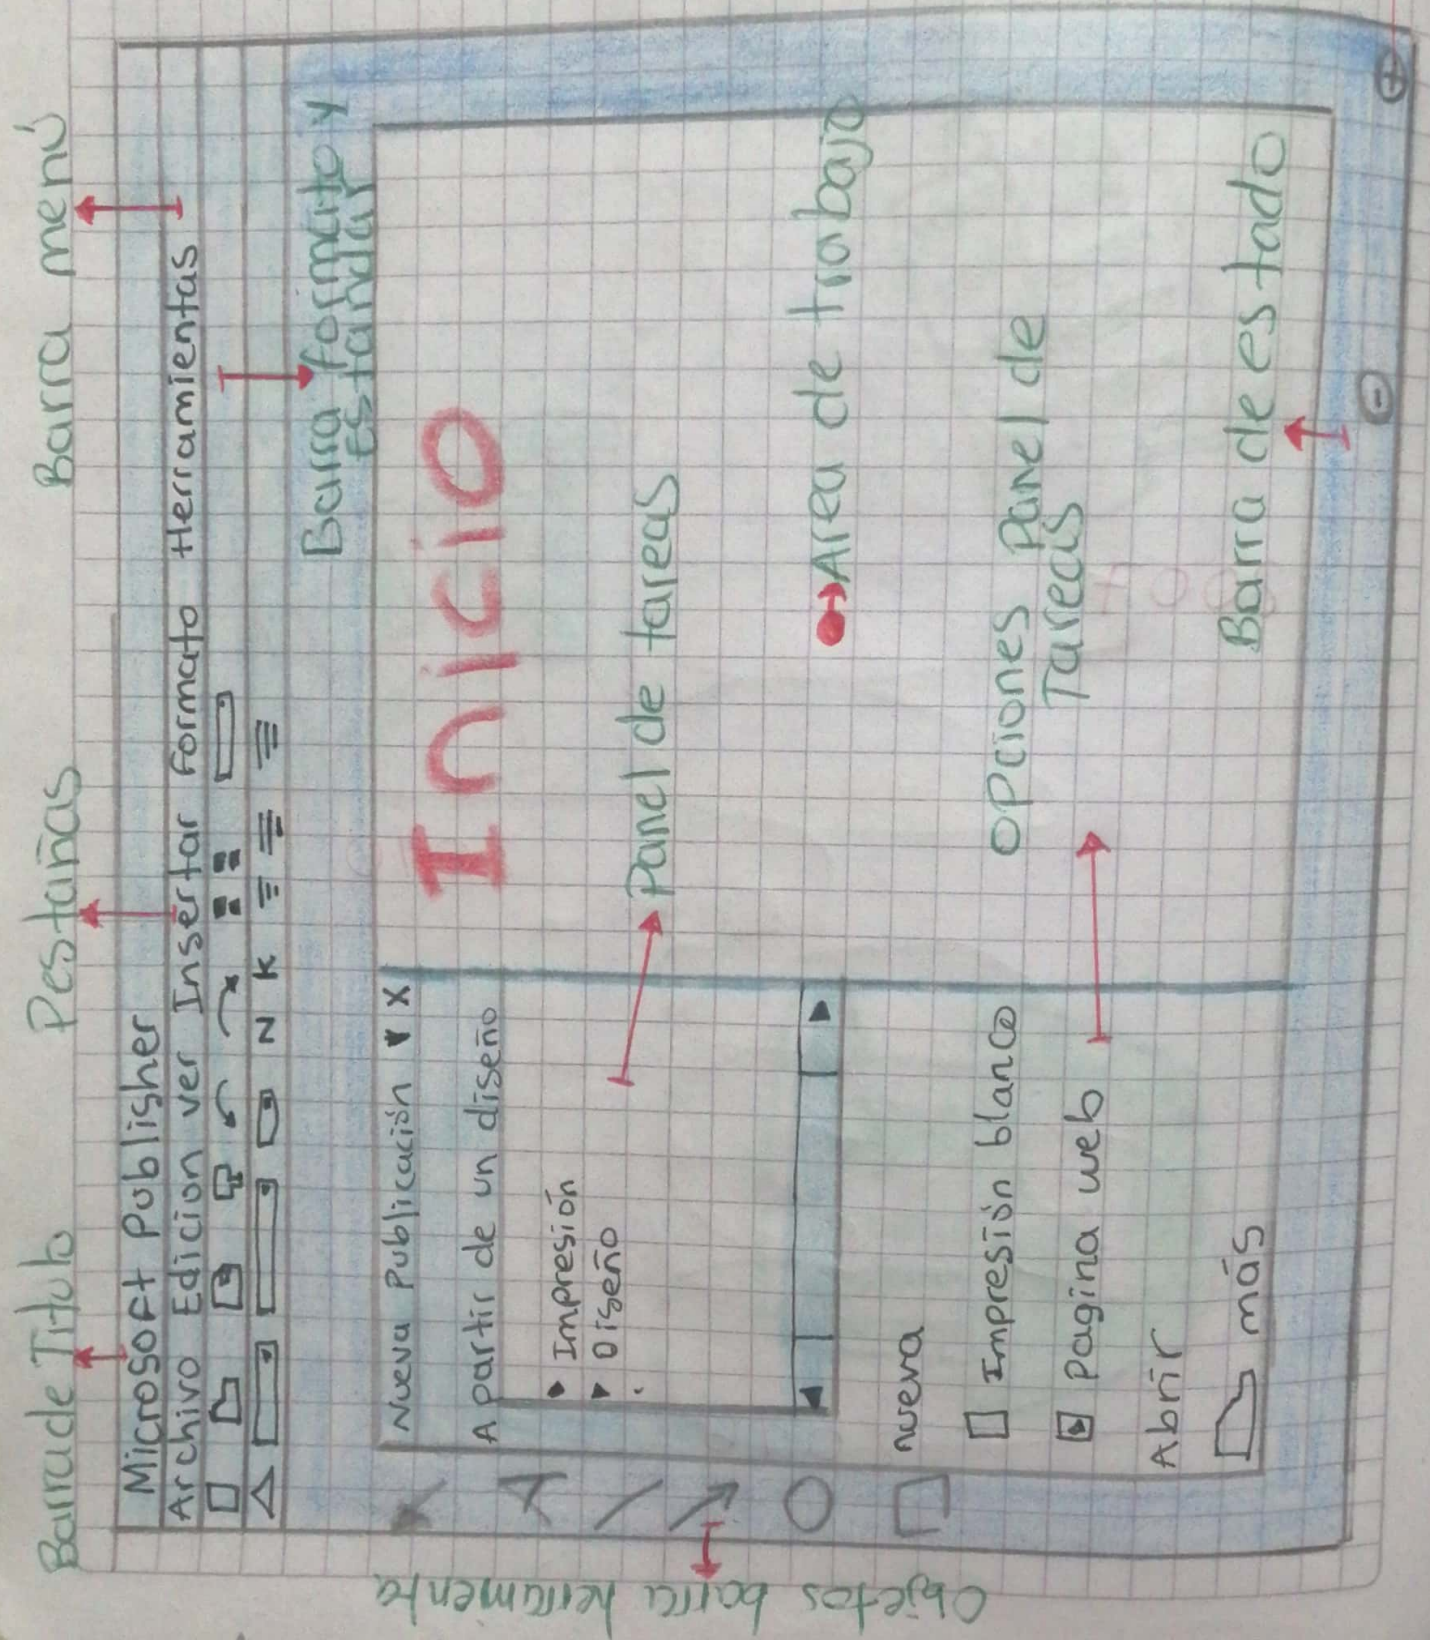 Barra de Titulo
Pestañas
Barra menú
Microsoft Publisher
Archivo Edicion ver Insertar formato Herramientas
N K
Barra formato y
Estandar
Nueva Publicación ▾ X
A partir de un diseño
Impresión
Diseño
Inicio
Panel de tareas
Area de trabajo
nueva
Impresión blanco
Pagina web
Abrir
más
Opciones Panel de
Tareas
Barra de estado
Objetos barra herramienta